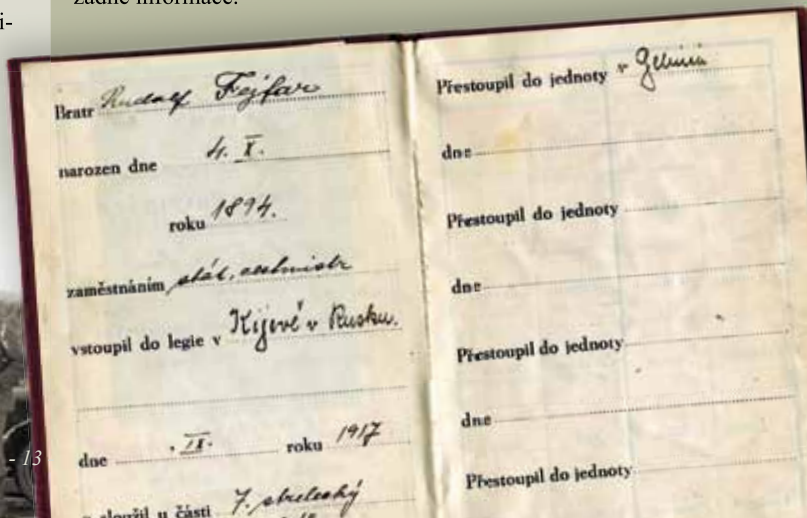 žádné informace.
i-
- 13
Bratr Rudolf Fejfar
narozen dne 4. X.
roku 1894.
zaměstnáním stát. cestmistr
vstoupil do legie v Kijevě v Rusku.
dne . IX. roku 1917
sloužil u části 7. střelecký
Přestoupil do jednoty v
dne
Přestoupil do jednoty
dne
Přestoupil do jednoty
dne
Přestoupil do jednoty